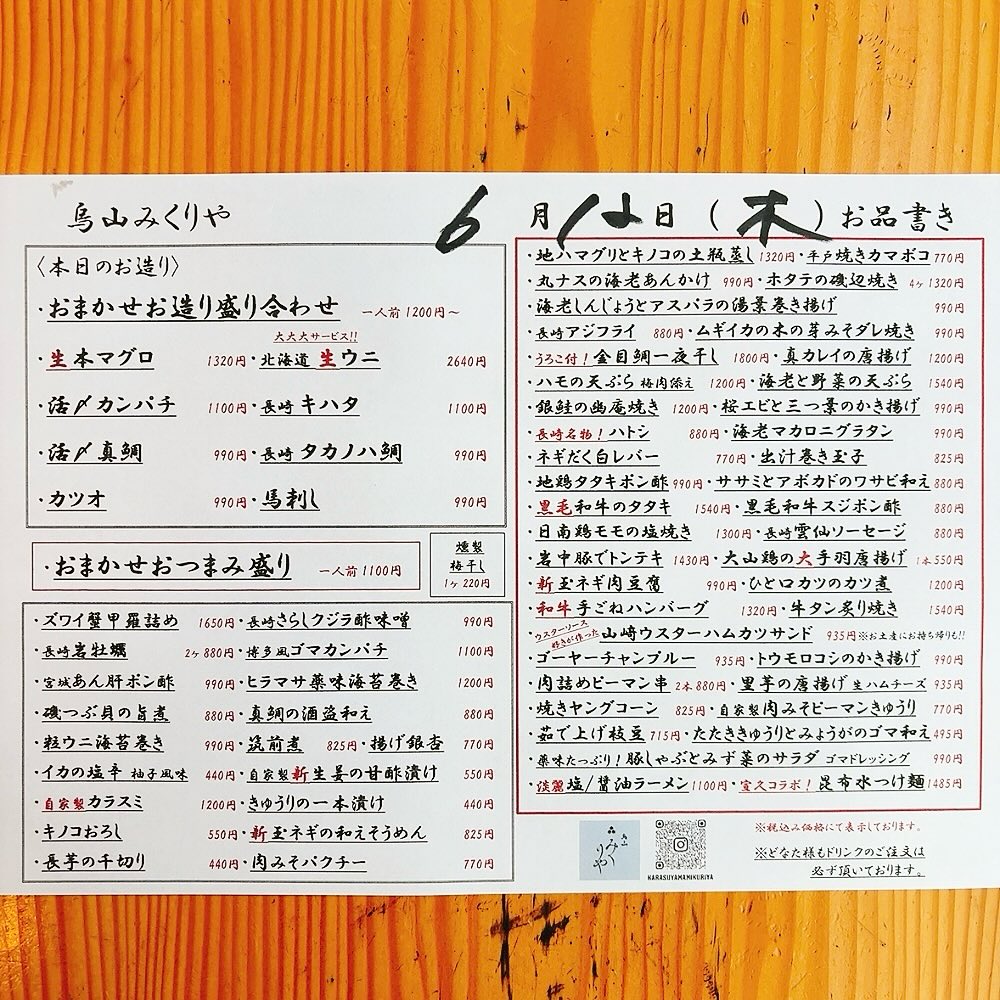 烏山みくりや
6月12日（木）お品書き
〈本日のお造り〉
・おまかせお造り盛り合わせ 一人前1200円～
大大大サービス!!
・生本マグロ 1320円・北海道 生ウニ 2640円
・活〆カンパチ 1100円・長崎 キハタ 1100円
・活〆真鯛 990円・長崎 タカノハ鯛 990円
・カツオ 990円・馬刺し 990円
・おまかせおつまみ盛り 一人前1100円
燻製
梅干し
1ヶ 220円
・ズワイ蟹甲羅詰め 1650円・長崎さらしクジラ酢味噌 990円
・長崎岩牡蠣 2ヶ 880円・博多風ゴマカンパチ 1100円
・宮城あん肝ポン酢 990円・ヒラマサ薬味海苔巻き 1200円
・磯つぶ貝の旨煮 880円・真鯛の酒盗和え 880円
・粒ウニ海苔巻き 990円・筑前煮 825円・揚げ銀杏 770円
・イカの塩辛 柚子風味 440円・自家製新生姜の甘酢漬け 550円
・自家製カラスミ 1200円・きゅうりの一本漬け 440円
・キノコおろし 550円・新玉ネギの和えそうめん 825円
・長芋の千切り 440円・肉みそパクチー 770円
・地ハマグリとキノコの土瓶蒸し 1320円・平戸焼きカマボコ 770円
・丸ナスの海老あんかけ 990円・ホタテの磯辺焼き 4ヶ 1320円
・海老しんじょうとアスパラの湯葉巻き揚げ 990円
・長崎アジフライ 880円・ムギイカの木の芽みそダレ焼き 990円
・うろこ付！金目鯛一夜干し 1800円・真カレイの唐揚げ 1200円
・ハモの天ぷら 梅肉添え 1200円・海老と野菜の天ぷら 1540円
・銀鮭の幽庵焼き 1200円・桜エビと三つ葉のかき揚げ 990円
・長崎名物！ハトシ 880円・海老マカロニグラタン 990円
・ネギだく白レバー 770円・出汁巻き玉子 825円
・地鶏タタキポン酢 990円・ササミとアボカドのワサビ和え 880円
・黒毛和牛のタタキ 1540円・黒毛和牛スジポン酢 880円
・日南鶏モモの塩焼き 1300円・長崎雲仙ソーセージ 880円
・岩中豚でトンテキ 1430円・大山鶏の大手羽唐揚げ 1本550円
・新玉ネギ肉豆腐 990円・ひとロカツのカツ煮 1200円
・和牛手ごねハンバーグ 1320円・牛タン炙り焼き 1540円
・ウスターソース好きが作った 山崎ウスターハムカツサンド 935円※お土産にお持ち帰りも!!
・ゴーヤーチャンプルー 935円・トウモロコシのかき揚げ 990円
・肉詰めピーマン串 2本 880円・里芋の唐揚げ 生ハムチーズ 935円
・焼きヤングコーン 825円・自家製肉みそピーマンきゅうり 770円
・茹で上げ枝豆 715円・たたききゅうりとみょうがのゴマ和え 495円
・薬味たっぷり！豚しゃぶとみず菜のサラダ ゴマドレッシング 990円
・淡麗塩/醤油ラーメン 1100円・宣久コラボ！昆布水つけ麺 1485円
烏山
みくりや
KARASUYAMAMIKURIYA
※税込み価格にて表示しております。
※どなた様もドリンクのご注文は
必ず頂いております。